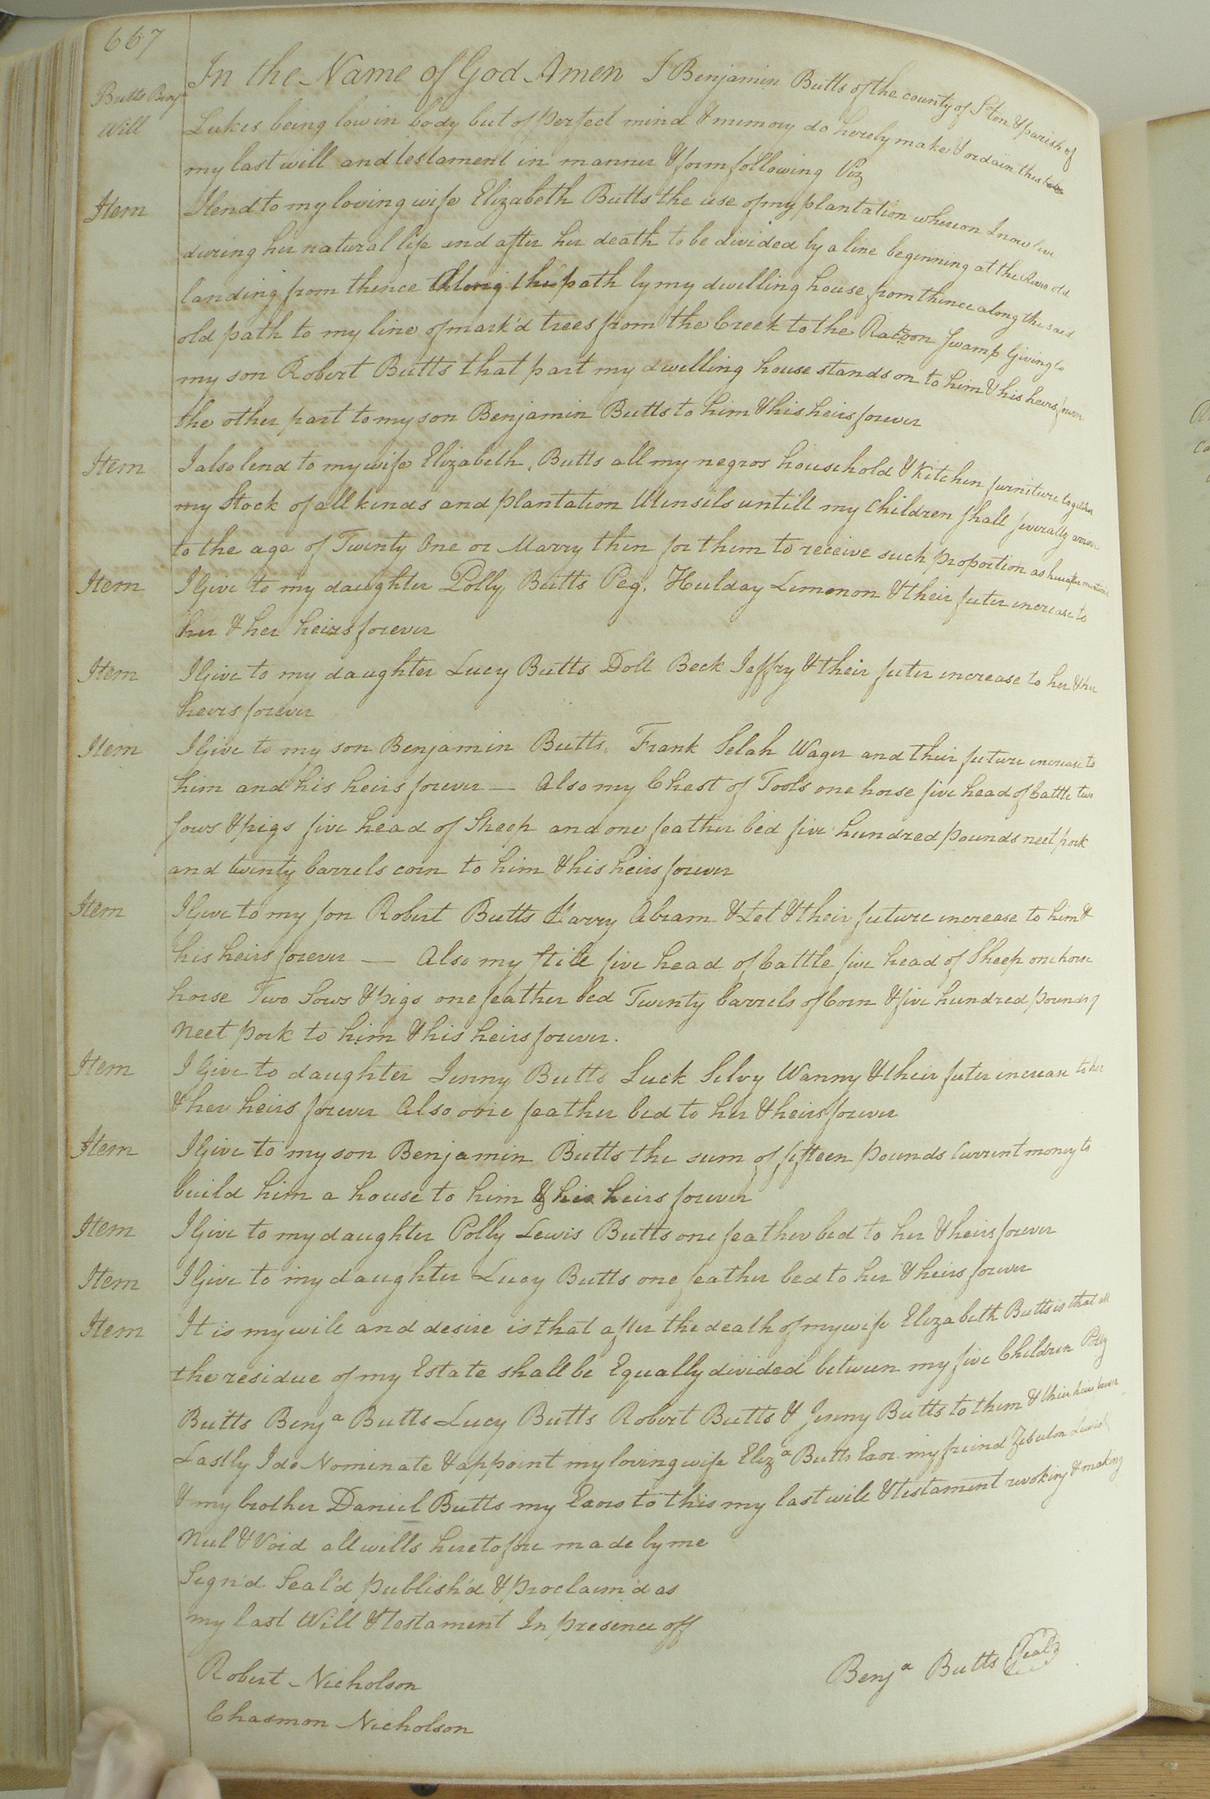 667
In the Name of God Amen I Benjamin Butts of the county of Soton & parish of
Butts Benja
Will
Lukes being low in body but of perfect mind & memory do hereby make & ordain this
my last will and testament in manner & form following Viz
Item I lend to my loving wife Elizabeth Butts the use of my plantation whereon I now live
during her natural life and after her death to be divided by a line beginning at the River old
landing from thence Along the path by my dwelling house from thence along the said
old path to my line of mark'd trees from the Creek to the Racoon Swamp Giving to
my son Robert Butts that part my dwelling house stands on to him & his heirs forever
the other part to my son Benjamin Butts to him & his heirs forever
Item I also lend to my wife Elizabeth Butts all my negros household & Kitchen furniture together
my Stock of all kinds and plantation Utensils untill my Children shall severally arrive
to the age of Twenty One or Marry then for them to receive such proportion as hereafter mentioned
Item I Give to my daughter Polly Butts Peg. Hulday Limonon & their futer increase to
her & her heirs forever
Item I Give to my daughter Lucy Butts Doll Beck Jeffry & their futer increase to her & her
heirs forever
Item I Give to my son Benjamin Butts Frank Selah Wager and their future increase to
him and his heirs forever — Also my Chest of Tools one horse five head of Cattle two
sows & pigs five head of Sheep and one feather bed five hundred pounds neet pork
and twenty barrels corn to him & his heirs forever
Item I Give to my son Robert Butts Harry Abram & Let & their future increase to him &
his heirs forever — Also my still five head of Cattle five head of Sheep one horse
horse Two Sows & pigs one feather bed Twenty barrels of Corn & five hundred pounds of
Neet pork to him & his heirs forever.
Item I Give to daughter Jenny Butts Luck Silvy Wanny & their futer increase to her
& her heirs forever Also one feather bed to her & heirs forever
Item I Give to my son Benjamin Butts the sum of fifteen pounds Current money to
build him a house to him & his heirs forever
Item I Give to my daughter Polly Lewis Butts one feather bed to her & heirs forever
Item I Give to my daughter Lucy Butts one feather bed to her & heirs forever
Item It is my will and desire is that after the death of my wife Elizabeth Butts is that all
the residue of my Estate shall be Equally divided between my five Children Polly
Butts Benja Butts Lucy Butts Robert Butts & Jenny Butts to them & their heirs forever
Lastly I do Nominate & appoint my loving wife Eliza Butts Exor my friend Zebulon Lewis
& my brother Daniel Butts my Exors to this my last will & testament revoking & making
Nul & Void all wills heretofore made by me
Sign'd Seal'd publish'd & proclaim'd as
my last Will & testament In presence off
Robert Nicholson
Benja Butts Seal
Chasmon Nicholson